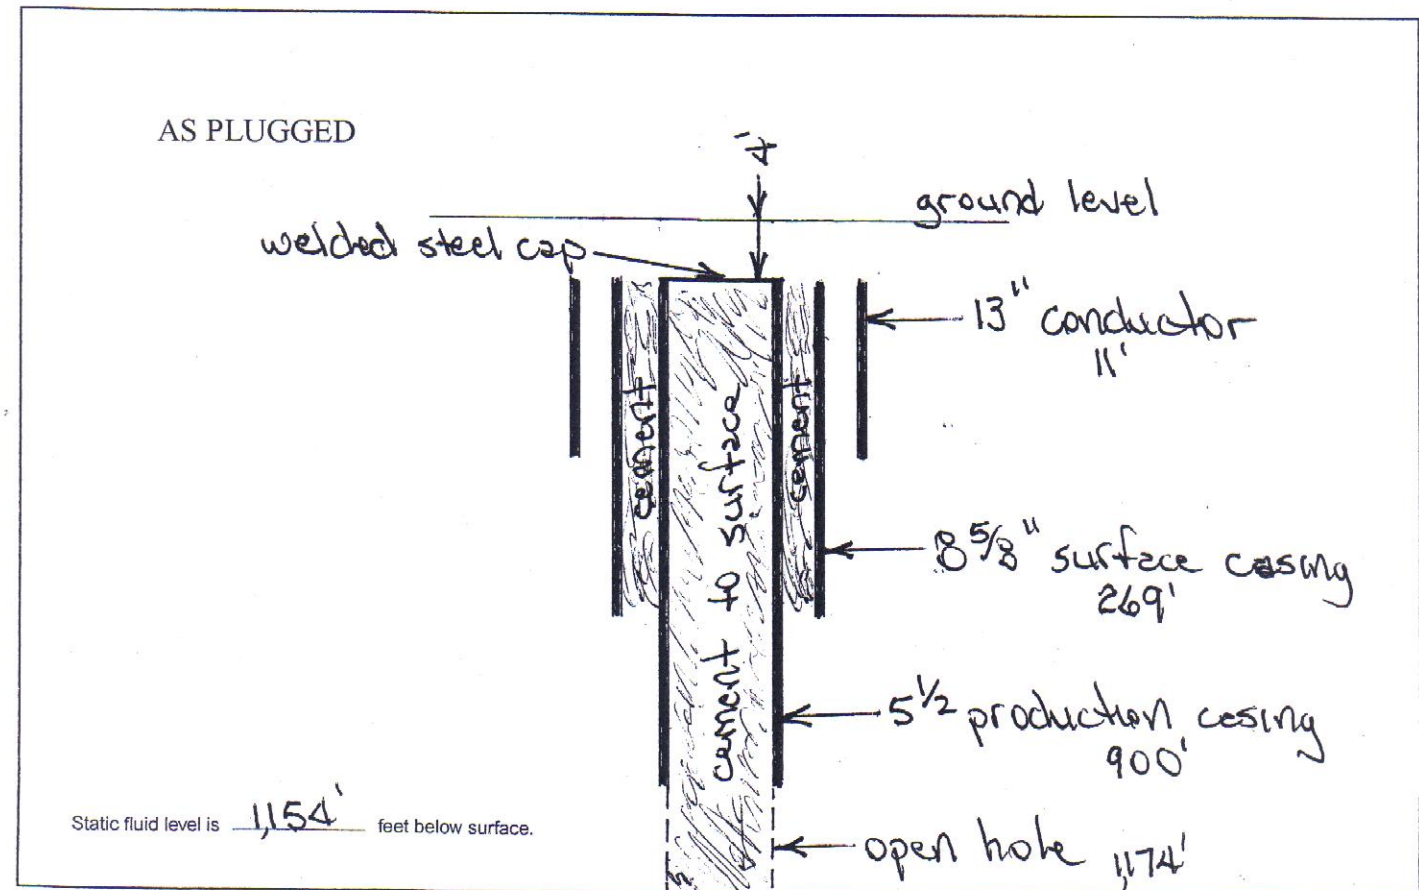 AS PLUGGED
4'
ground level
welded steel cap
13" conductor
11'
cement
cement to surface
cement
8 5/8" surface casing
269'
5 1/2 production casing
900'
Static fluid level is 1,154' feet below surface.
open hole 1,174'